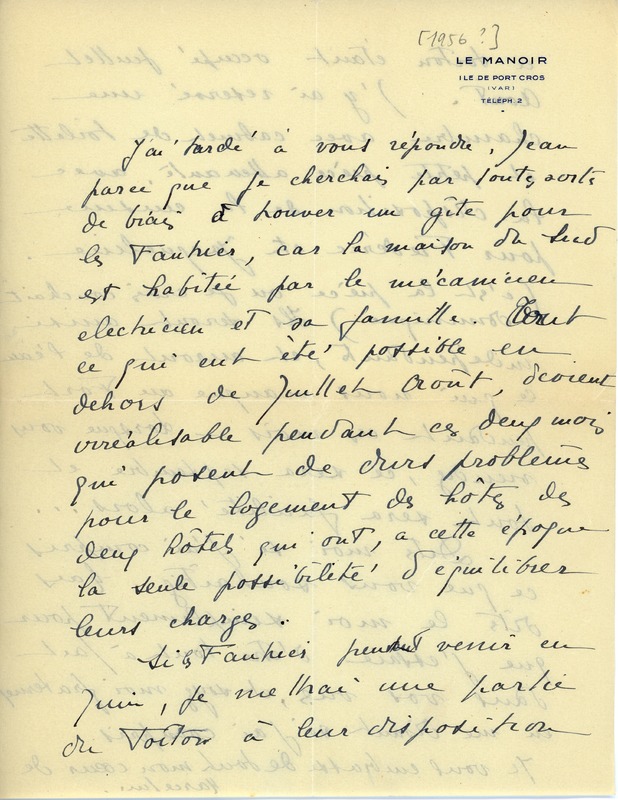 [1956 ?]
LE MANOIR
ILE DE PORT CROS
(VAR)
TÉLÉPH. 2
J'ai tardé à vous répondre, Jean
parce que je cherchais par toutes sortes
de biais à trouver un gîte pour
les Fautrier, car la maison du Sud
est habitée par le mécanicien
electricien et sa famille. Tout
ce qui eut été possible en
dehors de Juillet Août, devient
irréalisable pendant ces deux mois
qui posent de durs problèmes
pour le logement des hôtes des
deux hôtels qui ont, a cette époque
la seule possibilité d'équilibrer
leurs charges.
Si les Fautrier peuvent venir en
Juin, je mettrai une partie
du à leur disposition